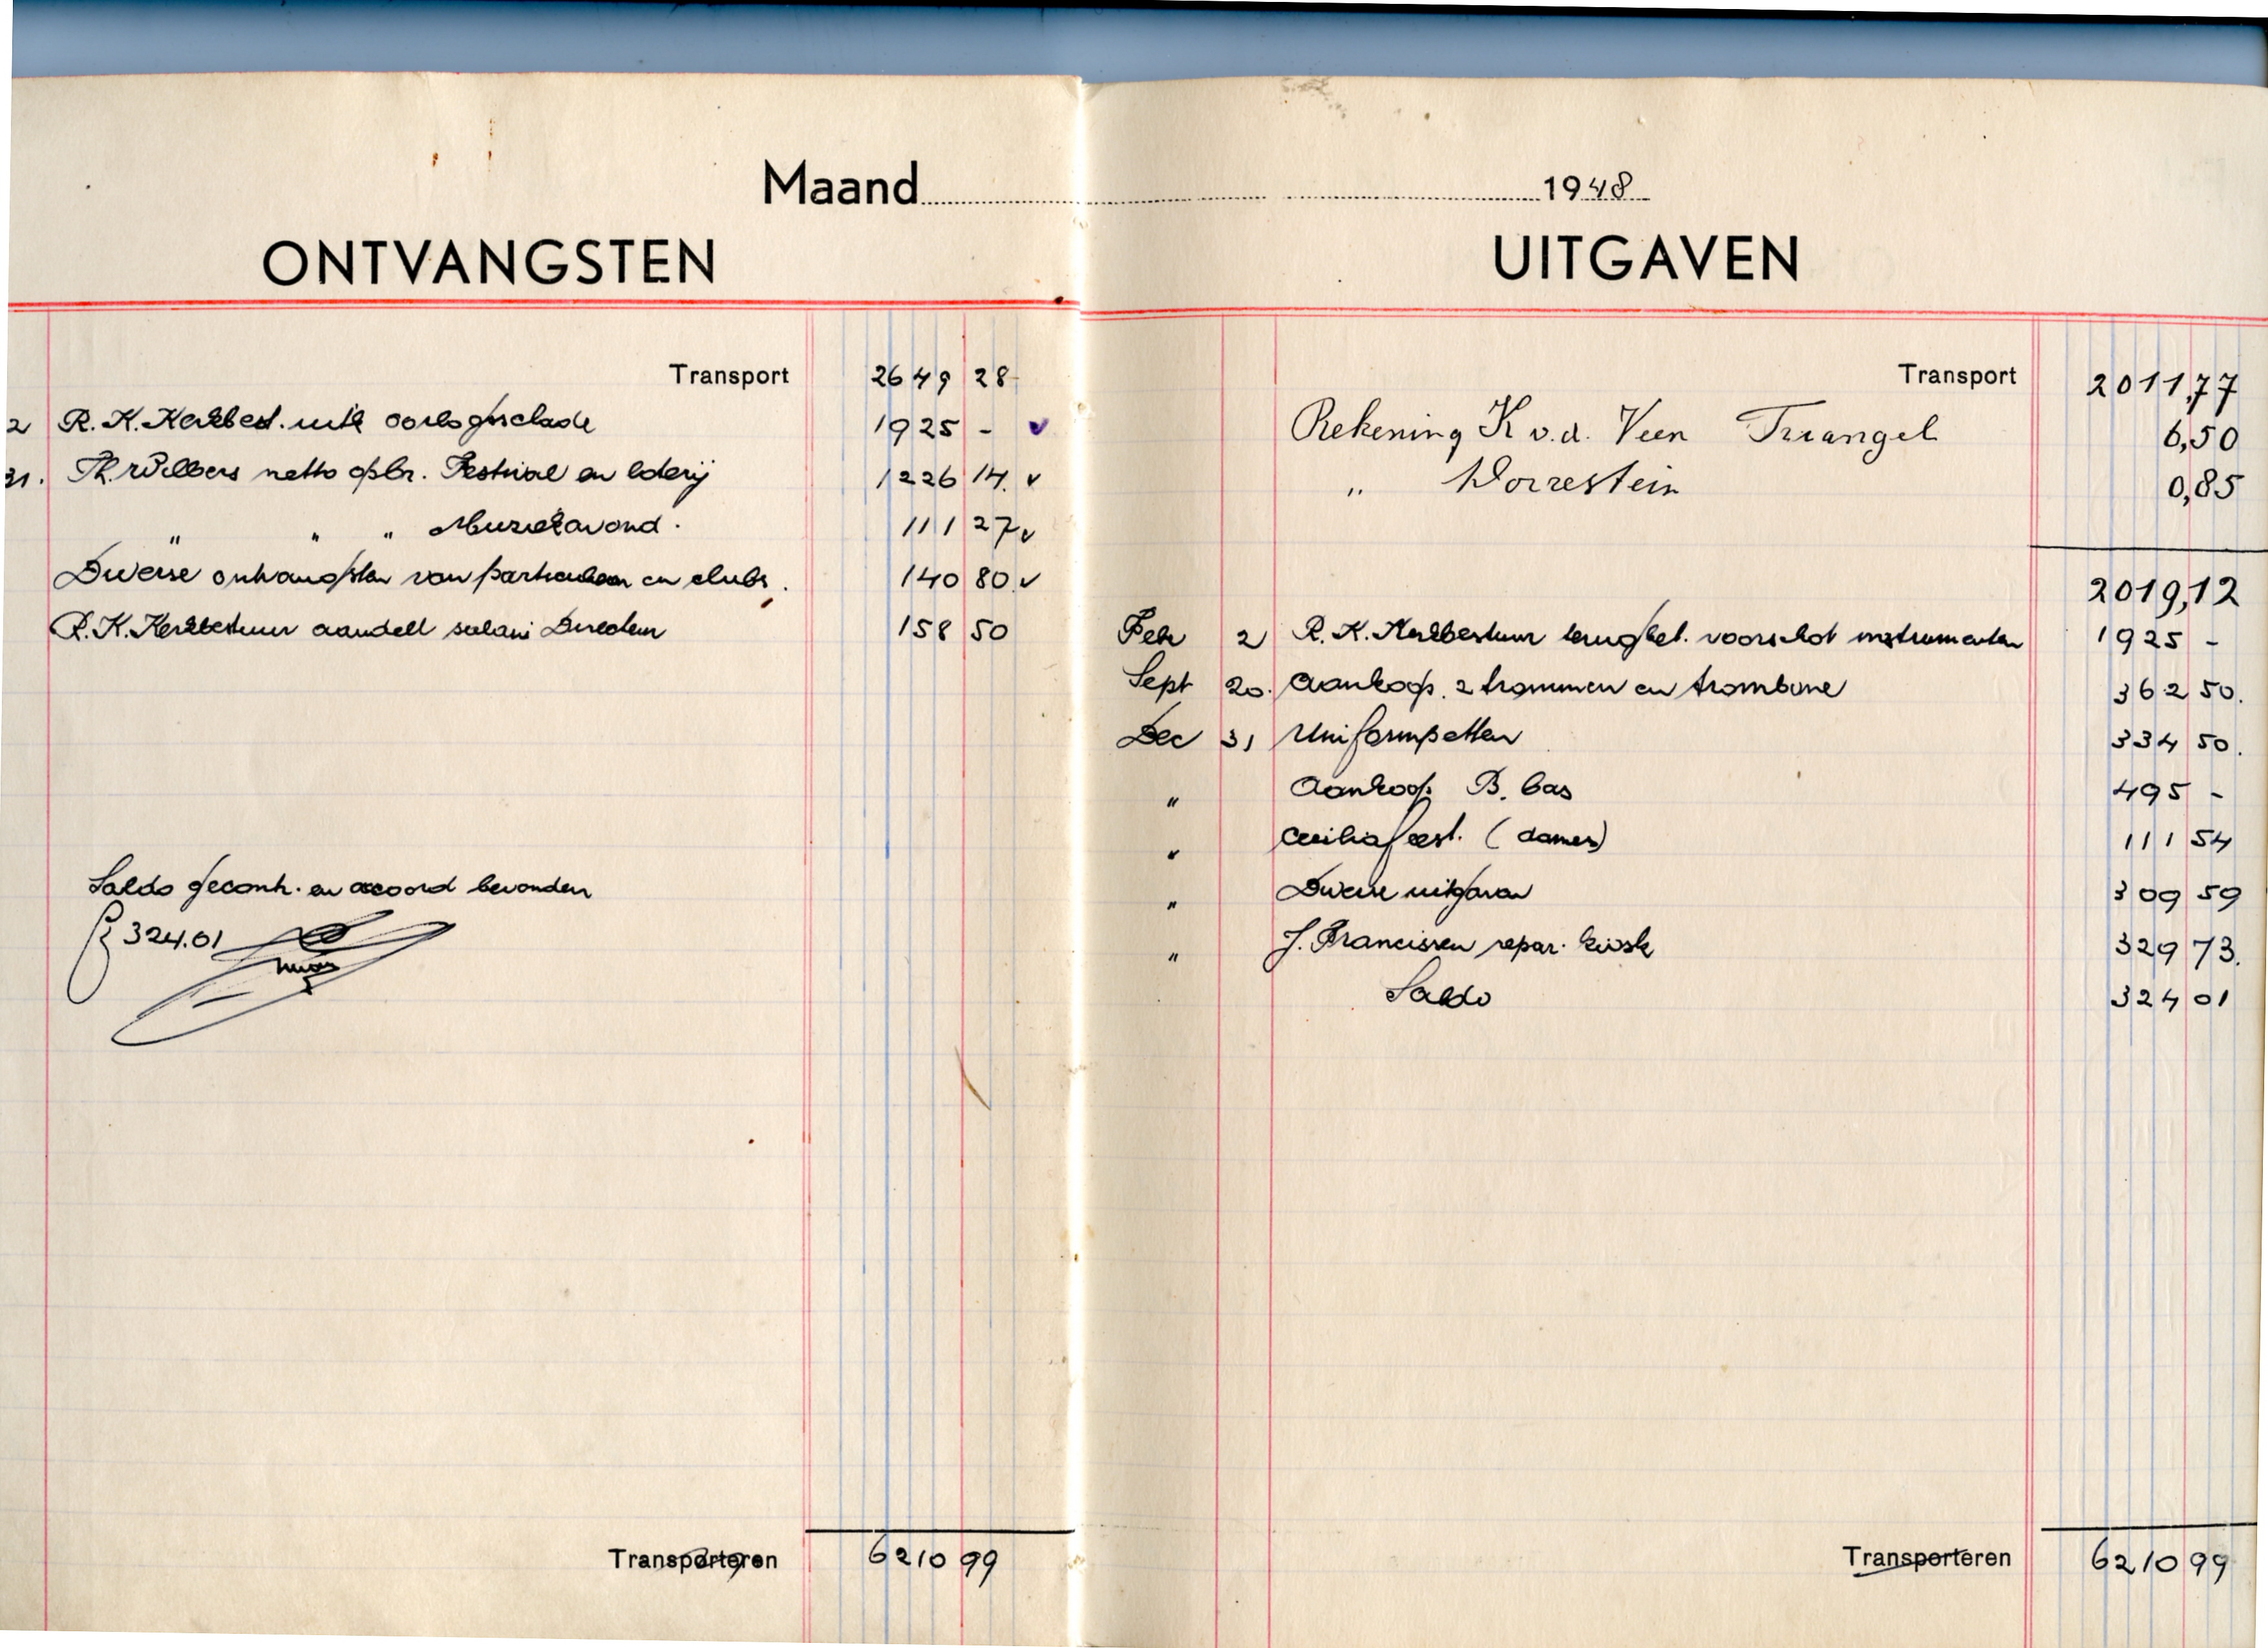 Maand 1948
ONTVANGSTEN
Transport 2649 28
2 R.K. Kerkbest. uitk oorlogsschade 1925 -
31. Th. Wilbers netto opbr. Festival en loterij 1226 14.
" " " Muziekavond. 111 27
Diverse ontvangsten van particulieren en clubs. 140 80.
R.K. Kerkbestuur aandeel salaris Directeur 158 50
Saldo gecontr. en accoord bevonden
324.01
Transporteren 6210 99
UITGAVEN
Transport 2011,77
Rekening K v.d. Veen Triangel 6,50
" Worrestein 0,85
2019,12
Feb 2 R.K. Kerkbestuur terugbet. voorschot instrumenten 1925 -
Sept 20. Aankoop. 2 trommen en trombone 362 50.
Dec 31 Uniformpetten 334 50.
" Aankoop B. bas 495 -
" Ceciliafeest. (dames) 111 54
" Diverse uitgaven 309 59
" J. Francissen repar. kiosk 329 73.
Saldo 324 01
Transporteren 6210 99